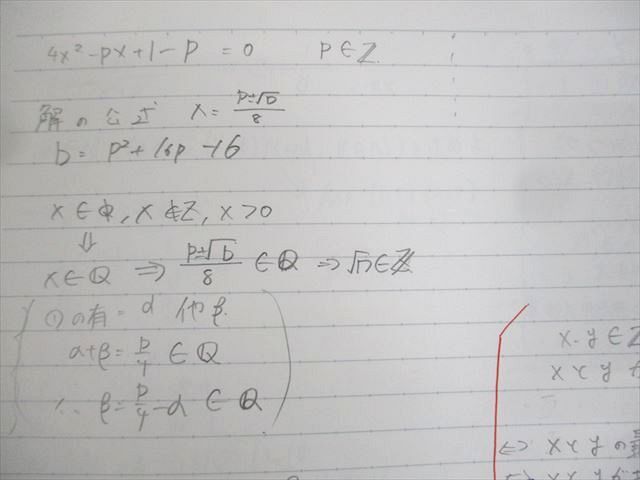 4x²-px+1-p = 0 p∈Z
解の公式 x=(p±√D)/8
D= p²+16p-16
x∈Q, x∉Z, x>0
⇓
x∈Q ⇒ (p±√D)/8 ∈Q ⇒√D∈Z
①の有=α 他β.
α+β=p/4 ∈Q
∴ β=p/4-α ∈Q
x.y∈Z
xとy
⇔ xとyの最